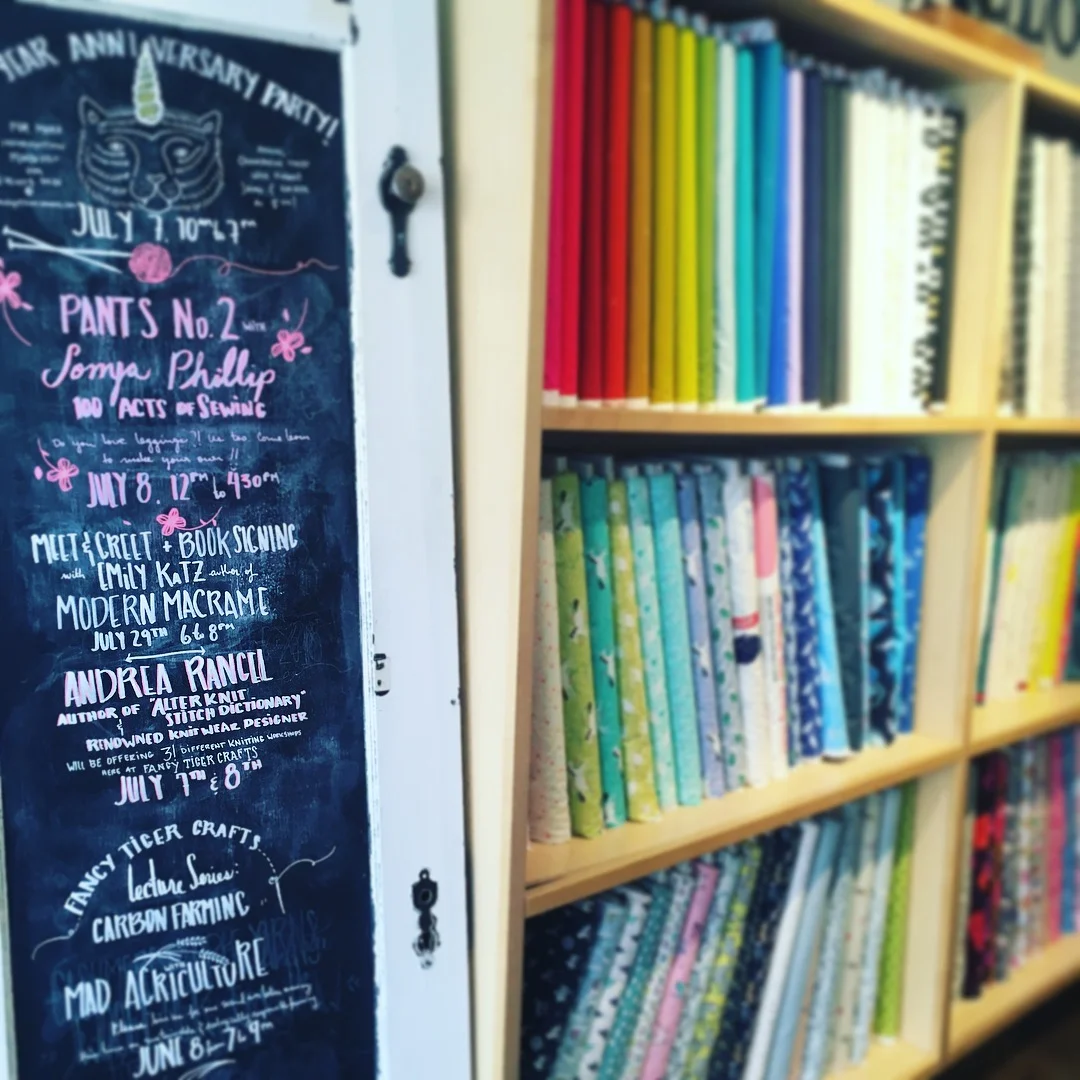 YEAR ANNIVERSARY PARTY!
JULY 7, 10am to 7pm
PANTS No. 2 WITH
Sonya Phillip
100 ACTS OF SEWING
Do you love leggings?! Us too. Come learn
to make your own!!
JULY 8. 12PM to 430PM
MEET & GREET + BOOK SIGNING
with EMILY KATZ author of
MODERN MACRAME
JULY 29TH 6 to 8PM
ANDREA RANGEL
AUTHOR OF "ALTERKNIT
STITCH DICTIONARY"
&
RENOWNED KNITWEAR DESIGNER
WILL BE OFFERING 3! DIFFERENT KNITTING WORKSHOPS
HERE AT FANCY TIGER CRAFTS
JULY 7TH & 8TH
FANCY TIGER CRAFTS
Lecture Series:
CARBON FARMING
WITH
MAD AGRICULTURE
JUNE 8 from 7 to 9PM